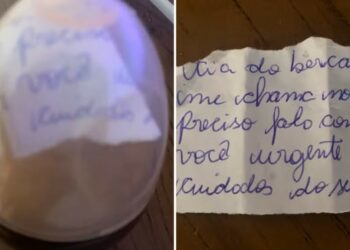 preciso
você
cuidados
tia do berça
me chama no
preciso falo com
você urgente
cuidados do se